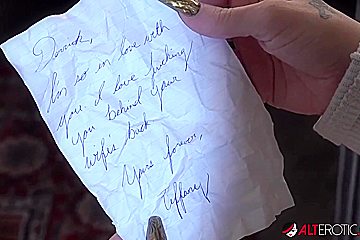 Derrick,
I'm so in love with
you. I love fucking
you behind your
wife's back
Yours forever,
Tiffany
ALTEROTIC